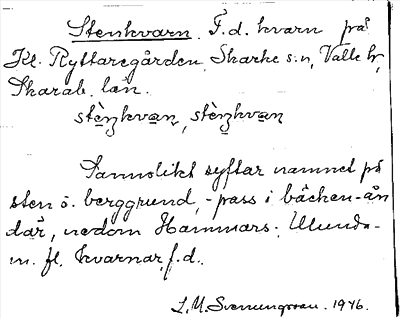 Stenkvarn. F.d. kvarn på
Kl. Ryttaregården, Skarke s:n, Valle hd,
Skarab. län.
stèŋkvan, stèŋkvan
Sannolikt syftar namnet på
sten o. berggrund, - pass i bäcken - ån
där, nedom Hammars-, Ulunda-
m. fl. kvarnar, f.d..
L.M. Svenungsson. 1946.